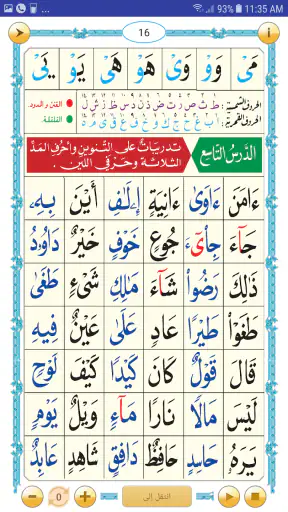 93% 11:35 AM
16
مَىْ وَوْ وَىْ هَوْ هَىْ يَوْ يَىْ
الحروف الشمسية: ط ث ص ر ت ض ذ ن د س ظ ز ش ل
الحروف القمرية: أ ب غ ح ج ك و خ ف ع ق ي م ه
الغنن و المدود.
القلقلة.
الدَّرْسُ التَّاسِع
تدريبات على التنوين واحرف المد الثلاثة وحرفي اللين.
ءَامَنَ ءَاوَىٰ ءَانِيَةٍ إِۦلَٰفِ أَيْنَ بِهِۦ
جَآءَ جِاْىٓءَ جُوعٍ خَوْفٍ خَيْرٌ دَاوُدُ
ذَٰلِكَ رَضُواْ شَآءَ مَٰلِكِ شَىْءٍ طَغَىٰ
طَغَوْاْ طَيْرًا عَادٍ عَلَىٰ عَيْنٌ فِيهِ
قَالَ قَوْلٌ كَانَ كَيْدًا كَيْفَ لَوْحٍ
لَيْسَ مَالًا نَارًا مَآءٍ وَيْلٌ يَوْمٍ
يَرَهُۥ حَاسِدٍ حَافِظٌ دَافِقٍ شَاهِدٍ عَابِدٌ
0 انتقل إلى